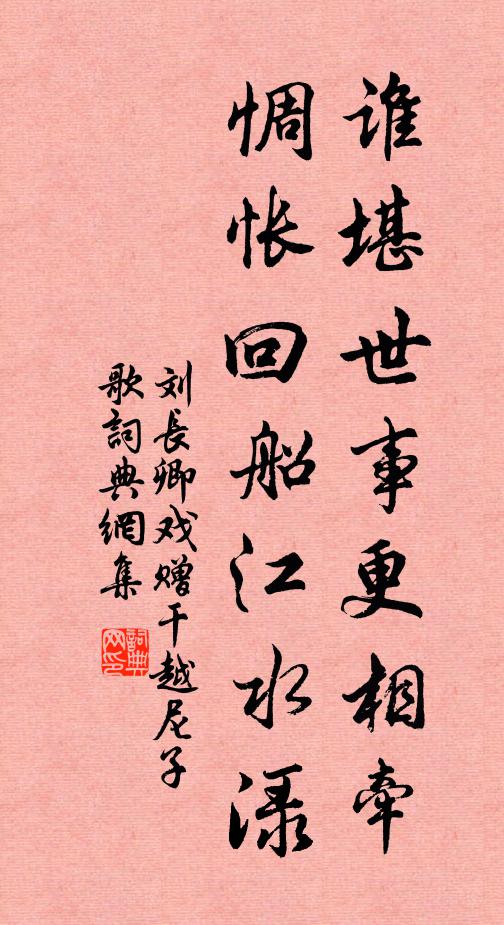 谁堪世事更相牵
惆怅回船江水渌
刘长卿戏赠干越尼子
歌詞典網集
詞典網印